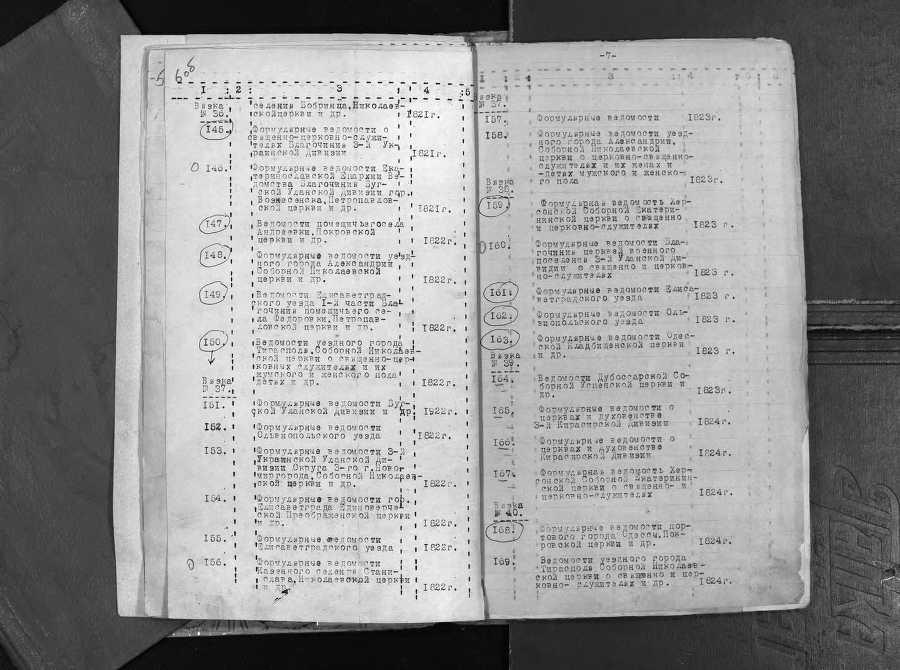 608
I 2 3 4 5
Вязка № 36. селения Бобринца, Николаев-
ской церкви и др. 1821г.
145. Формулярные ведомости о
священно-церковно-служи-
телях Благочиния 3-й Ук-
раинской Дивизии 1821г.
146. Формулярные ведомости Ека-
теринославской Епархии Ве-
домства Благочиния Буг-
ской Уланской Дивизии гор.
Вознесенска, Петропавлов-
ской церкви и др. 1821г.
147. Ведомости помещичьегосела
Андреевки, Покровской
церкви и др. 1822г.
148. Формулярные ведомости уезд-
ного города Александрии
Соборной Николаевской
церкви и др. 1822г.
149. Ведомости Елисаветград-
ского уезда I-й части Бла-
гочиния помещичьего се-
ла Федоровки, Петропав-
ловской церкви и др. 1822г.
150. Ведомости уездного города
Тирасполя, Соборной Николаев-
ской церкви о священно-цер-
ковных служителях и их
мужского и женского пола
детях и др. 1822г.
Вязка № 37.
151. Формулярные ведомости Буг-
ской Уланской Дивизии и др. 1922г.
152. Формулярные ведомости
Ольвиопольского уезда 1822г.
153. Формулярные ведомости 3-й
Украинской Уланской Ди-
визии Округа 3-го г. Ново-
миргорода, Соборной Николаев-
ской церкви и др. 1822г.
154. Формулярные ведомости гор.
Елисаветграда Единоверче-
ской Преображенской церкви
и др. 1822г.
155. Формулярные ведомости
Елисаветградского уезда 1822г.
156. Формулярные ведомости
Казенного селения Стани-
слава, Николаевской церкви
и др. 1822г.
-7-
I 2 3 4 5
Вязка № 37.
157. Формулярные ведомости 1823г.
158. Формулярные ведомости уезд-
ного города Александрии,
Соборной Николаевской
церкви о церковно-священно-
служителях и их женах и
-детях мужского и женско-
го пола 1823г.
Вязка № 38.
159. Формулярная ведомость Хер-
сонской Соборной Екатери-
нинской церкви о священно
и церковно-служителях 1823 г.
160. Формулярные ведомости Бла-
гочиния церквей военного
поселения 3-й Уланской Ди-
визии о священно и церков-
но-служителях 1823 г.
161. Формулярные ведомости Елиса-
ветградского уезда 1823 г.
162. Формулярные ведомости Оль-
виопольского уезда 1823 г.
163. Формулярные ведомости Одес-
ской Кладбищенской церкви
и др. 1823 г.
Вязка № 39.
164. Ведомости Дубоссарской Со-
борной Успенской церкви и
др. 1823г.
165. Формулярные ведомости о
церквах и духовенстве
3-й Кирасирской Дивизии 1824г.
166. Формулярные ведомости о
церквах и духовенстве
Кирасирской Дивизии 1824г.
167. Формулярная ведомость Хер-
сонской Соборной Екатеринин-
ской церкви о священно- и
церковно-служителях 1824г.
Вязка № 40.
168. Формулярные ведомости пор-
тового города Одессы, Пок-
ровской церкви и др. 1824г.
169. Ведомости уездного города
Тирасполя Соборной Николаев-
ской церкви о священно и цер-
ковно- служителях и др. 1824г.